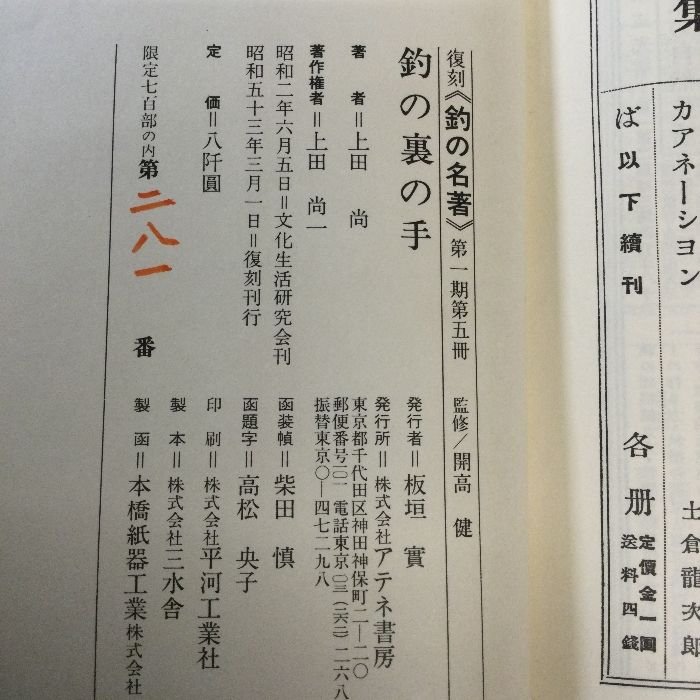 集
カアネーション
土倉龍次郎
ば以下續刊
各册
定價金一圓
送料四錢
復刻《釣の名著》第一期第五冊 監修/開高 健
釣の裏の手
著 者＝上田 尚
著作権者＝上田 尚一
昭和二年六月五日＝文化生活研究会刊
昭和五十三年三月一日＝復刻刊行
定 価＝八阡圓
限定七百部の内第二八一番
発行者＝板垣 實
発行所＝株式会社アテネ書房
東京都千代田区神田神保町二ー二〇
郵便番号一〇一 電話東京〇三(二六二)二六八
振替東京〇ー四七二九八
函装幀＝柴田 慎
函題字＝高松 央子
印 刷＝株式会社平河工業社
製 本＝株式会社三水舎
製 函＝本橋紙器工業株式会社